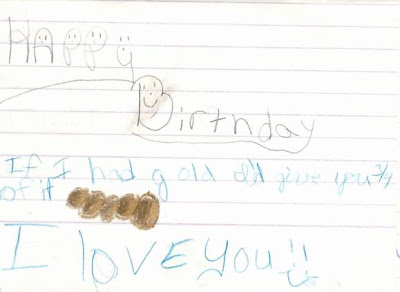 Happy
Birthday
If I had gold I'd give you 3/4
of it
I love you!!